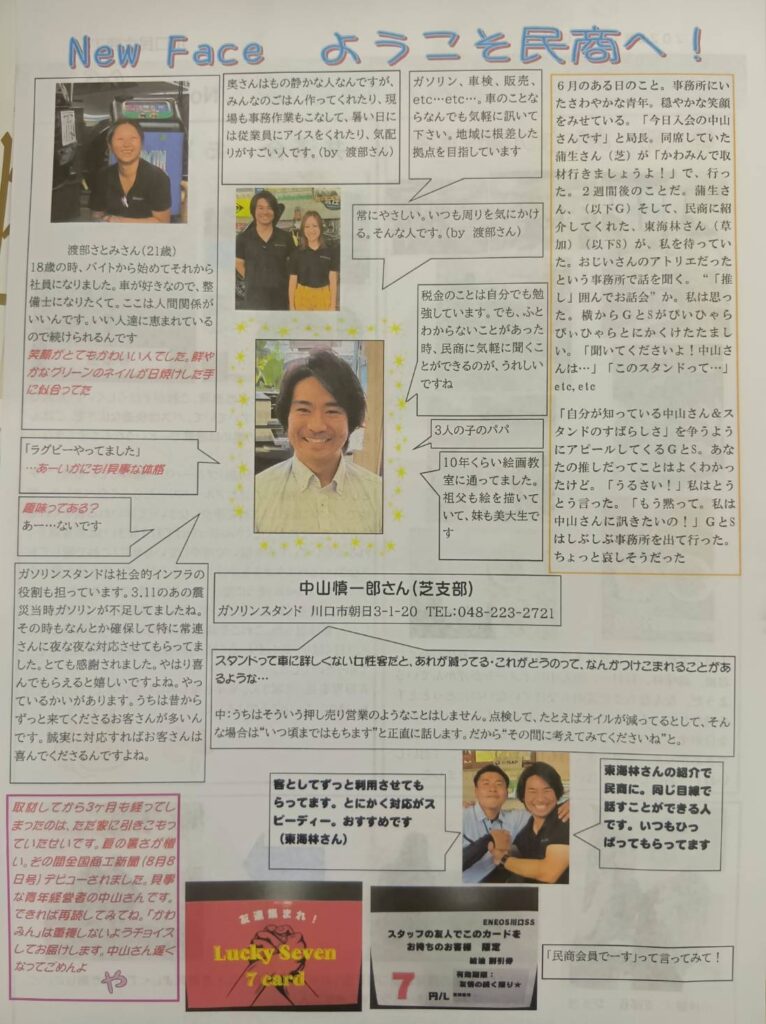 New Face ようこそ民商へ！
渡部さとみさん(21歳)
18歳の時、バイトから始めてそれから
社員になりました。車が好きなので、整
備士になりたくて。ここは人間関係が
いいんです。いい人達に恵まれている
ので続けられるんです
笑顔がとてもかわいい人でした。鮮や
かなグリーンのネイルが日焼けした手
に似合ってた
奥さんはもの静かな人なんですが、
みんなのごはん作ってくれたり、現
場も事務作業もこなして、暑い日に
は従業員にアイスをくれたり、気配
りがすごい人です。(by 渡部さん)
ガソリン、車検、販売、
etc…etc…。車のことな
らなんでも気軽に訊いて
下さい。地域に根差した
拠点を目指しています
常にやさしい。いつも周りを気にかけ
る。そんな人です。(by 渡部さん)
税金のことは自分でも勉
強しています。でも、ふと
わからないことがあった
時、民商に気軽に聞くこ
とができるのが、うれしい
ですね
3人の子のパパ
10年くらい絵画教
室に通ってました。
祖父も絵を描いて
いて、妹も美大生で
す
「ラグビーやってました」
…あーいかにも!見事な体格
趣味ってある?
あー…ないです
ガソリンスタンドは社会的インフラの
役割も担っています。3.11のあの震
災当時ガソリンが不足してましたね。
その時もなんとか確保して特に常連
さんに夜な夜な対応させてもらってま
した。とても感謝されました。やはり喜
んでもらえると嬉しいですよね。やっ
ているかいがあります。うちは昔から
ずっと来てくださるお客さんが多いん
です。誠実に対応すればお客さんは
喜んでくださるんですよね。
6月のある日のこと。事務所に
いたさわやかな青年。穏やかな笑顔
をみせている。「今日入会の中山
さんです」と局長。同席していた
蒲生さん（芝）が「かわみんで取
材行きましょうよ！」で、行っ
た。２週間後のことだ。蒲生さ
ん、（以下G）そして、民商に紹
介してくれた、東海林さん（草
加）（以下S）が、私を待ってい
た。おじいさんのアトリエだった
という事務所で話を聞く。“「推
し」囲んでお話会”か。私は思っ
た。横からGとSがぴぃひゃら
ぴぃひゃらとにかくけたたまし
い。「聞いてくださいよ！中山さ
んは…」「このスタンドって…」
etc, etc
「自分が知っている中山さん＆ス
タンドのすばらしさ」を争うよう
にアピールしてくるGとS。あな
たの推しだってことはよくわかっ
たけど。「うるさい！」私はとう
とう言った。「もう黙って。私は
中山さんに訊きたいの！」GとS
はしぶしぶ事務所を出て行った。
ちょっと哀しそうだった
中山慎一郎さん(芝支部)
ガソリンスタンド 川口市朝日3-1-20 TEL:048-223-2721
スタンドって車に詳しくない女性客だと、あれが減ってる・これがどうのって、なんかつけこまれることがあ
るような…
中:うちはそういう押し売り営業のようなことはしません。点検して、たとえばオイルが減ってるとして、そん
な場合は“いつ頃まではもちます”と正直に話します。だから“その間に考えてみてくださいね”と。
客としてずっと利用させても
らってます。とにかく対応がス
ピーディー。おすすめです
(東海林さん)
東海林さんの紹介で
民商に。同じ目線で
話すことができる人
です。いつもひっ
ぱってもらってます
取材してから3ヶ月も経ってし
まったのは、ただ家に引きこもっ
ていたせいです。夏の暑さが憎
い。その間全国商工新聞(8月8
日号)デビューされました。見事
な青年経営者の中山さんです。
できれば再読してみてね。「かわ
みん」は重複しないようチョイス
してお届けします。中山さん遅く
なってごめんよ
や
友達集まれ！
Lucky Seven
7 card
ENEOS川口SS
スタッフの友人でこのカードを
お持ちのお客様 限定
給油 割引券
7円/L
有効期限：
友情の続く限り★
「民商会員でーす」って言ってみて！